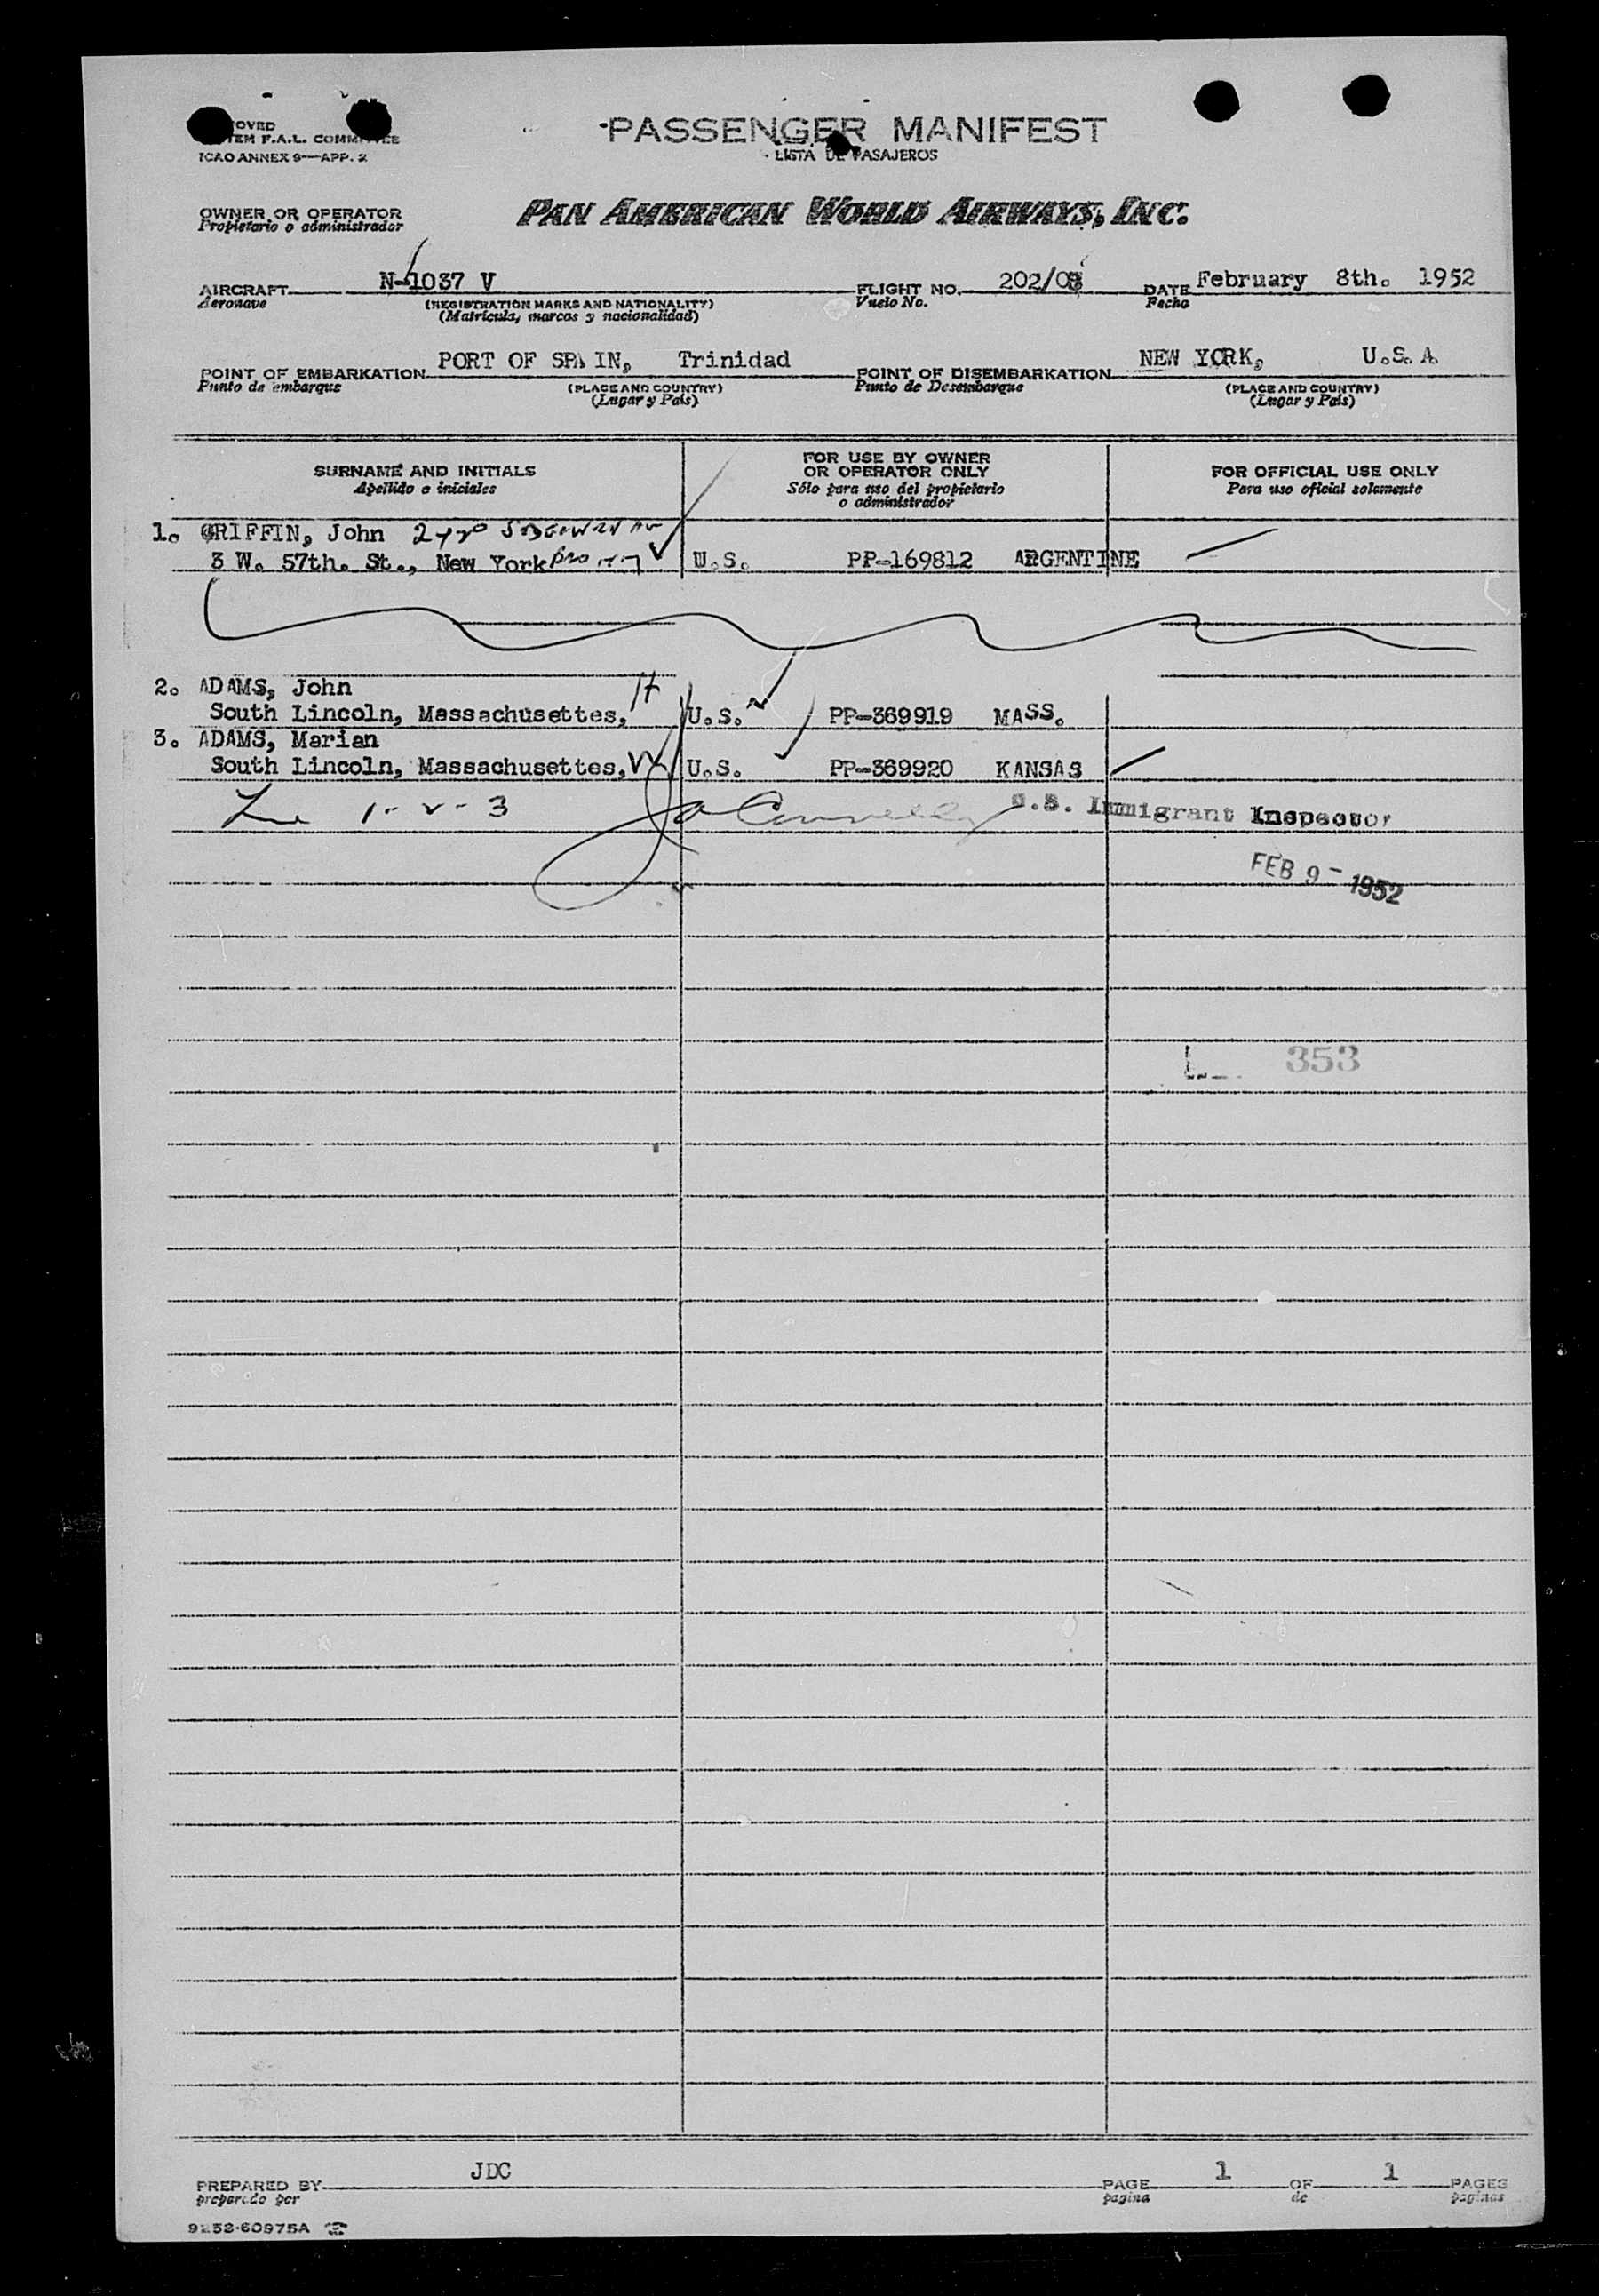 PASSENGER MANIFEST
LISTA DE PASAJEROS
ICAO ANNEX 9—APP. 2
OWNER OR OPERATOR
Propietario o administrador
PAN AMERICAN WORLD AIRWAYS, INC.
AIRCRAFT N-1037 V FLIGHT NO. 202/08 DATE February 8th. 1952
Aeronave (REGISTRATION MARKS AND NATIONALITY) Vuelo No. Fecha
(Matrícula, marcas y nacionalidad)
POINT OF EMBARKATION PORT OF SPAIN, Trinidad POINT OF DISEMBARKATION NEW YORK, U.S.A.
Punto de embarque (PLACE AND COUNTRY) Punto de Desembarque (PLACE AND COUNTRY)
(Lugar y País) (Lugar y País)
SURNAME AND INITIALS FOR USE BY OWNER OR OPERATOR ONLY FOR OFFICIAL USE ONLY
Apellido e iniciales Sólo para uso del propietario o administrador Para uso oficial solamente
1. GRIFFIN, John
3 W. 57th. St., New York U.S. PP-169812 ARGENTINE
2. ADAMS, John
South Lincoln, Massachusettes, U.S. PP-369919 MASS.
3. ADAMS, Marian
South Lincoln, Massachusettes, U.S. PP-369920 KANSAS
1-2-3 U.S. Immigrant Inspector
FEB 9 - 1952
353
PREPARED BY JDC PAGE 1 OF 1 PAGES
preparado por pagina de paginas
9253-60975A